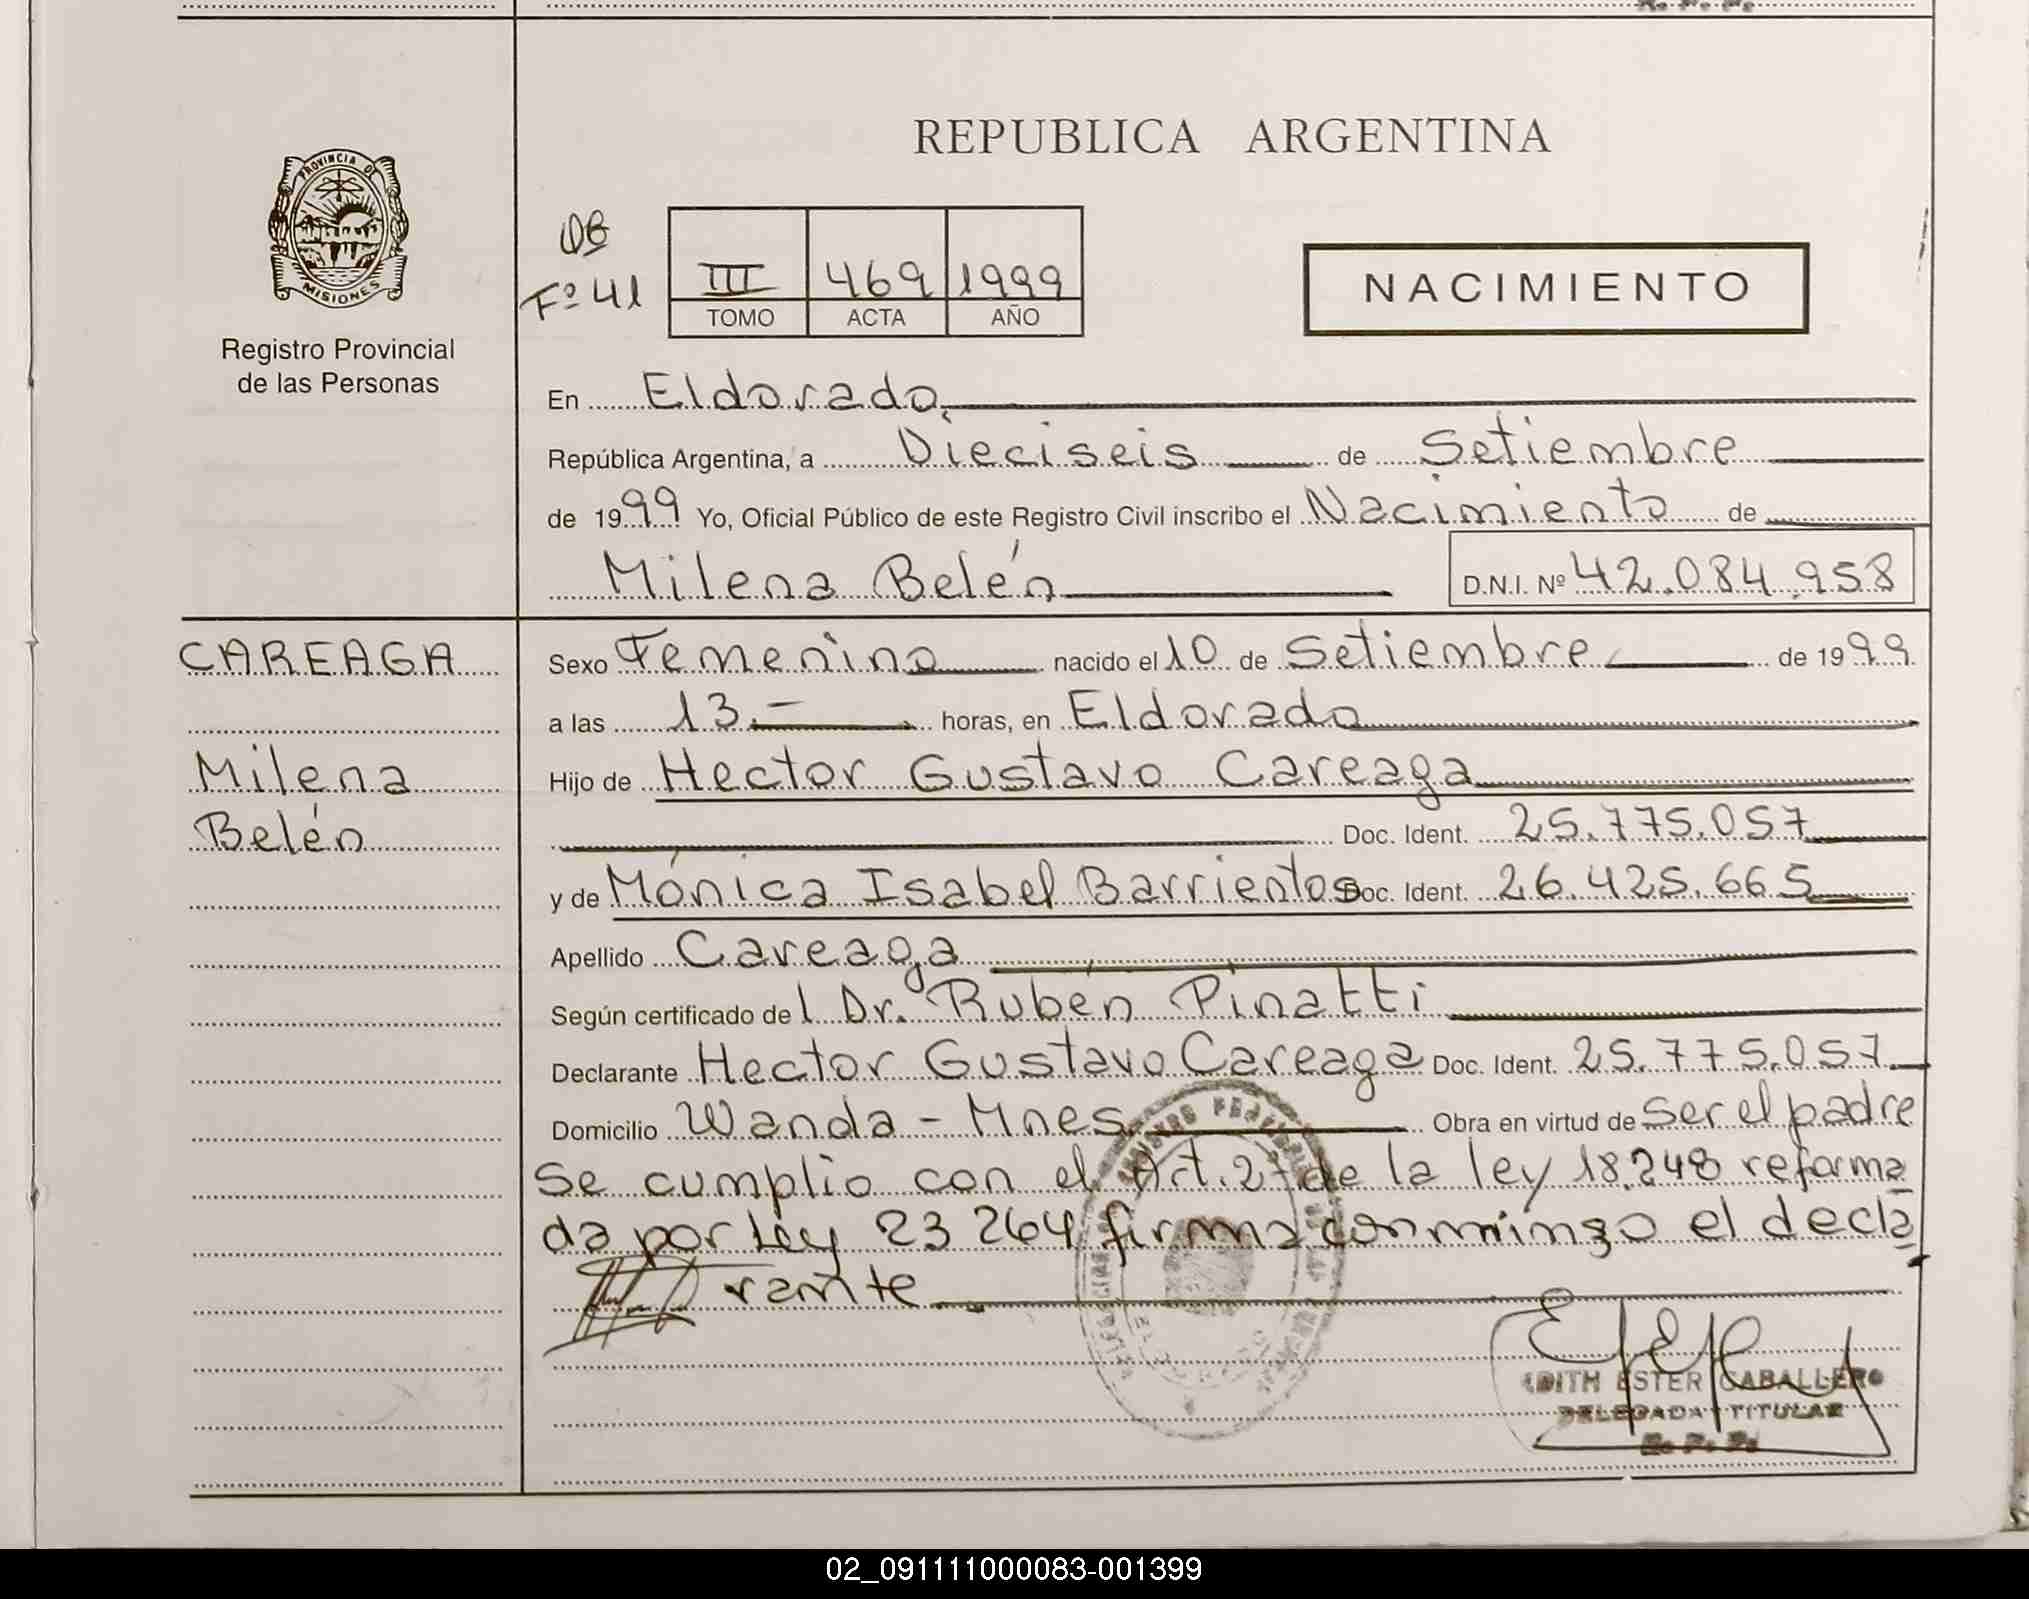 REPUBLICA ARGENTINA
PROVINCIA DE
MISIONES
Registro Provincial
de las Personas
Fº 41
III 469 1999
TOMO ACTA AÑO
NACIMIENTO
En Eldorado
República Argentina, a Dieciseis de Setiembre
de 1999 Yo, Oficial Público de este Registro Civil inscribo el Nacimiento de
Milena Belén D.N.I. Nº 42.084.958
CAREAGA
Milena
Belén
Sexo Femenino nacido el 10 de Setiembre de 1999
a las 13.- horas, en Eldorado
Hijo de Hector Gustavo Careaga
Doc. Ident. 25.775.057
y de Mónica Isabel Barrientos Doc. Ident. 26.425.665
Apellido Careaga
Según certificado del Dr. Rubén Pinatti
Declarante Hector Gustavo Careaga Doc. Ident. 25.775.057
Domicilio Wanda - Mnes. Obra en virtud de ser el padre
Se cumplio con el Art. 2º de la ley 18.248 reforma
da por Ley 23 264 firma conmingo el decla
rante
EDITH ESTER CABALLERO
DELEGADA TITULAR
R. P. P.
02_091111000083-001399